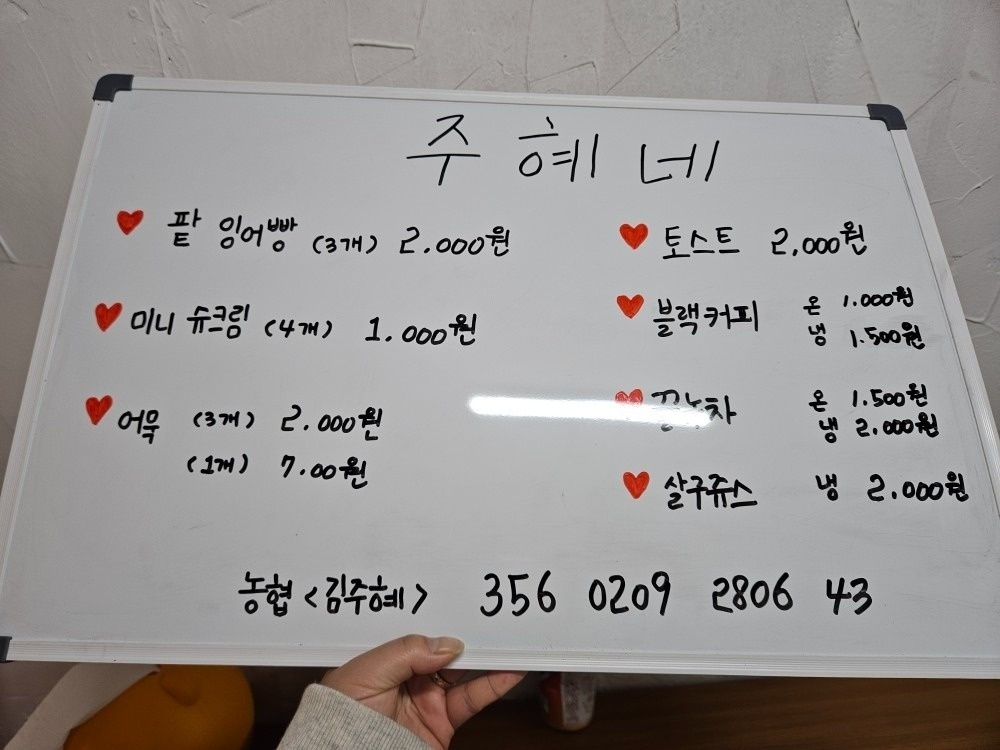 주혜네
팥 잉어빵 (3개) 2.000원
미니 슈크림 (4개) 1.000원
어묵 (3개) 2.000원
(1개) 7.00원
토스트 2,000원
블랙커피 온 1.000원
냉 1.500원
온 1.500원
냉 2.000원
살구쥬스 냉 2.000원
농협 <김주혜> 356 0209 2806 43